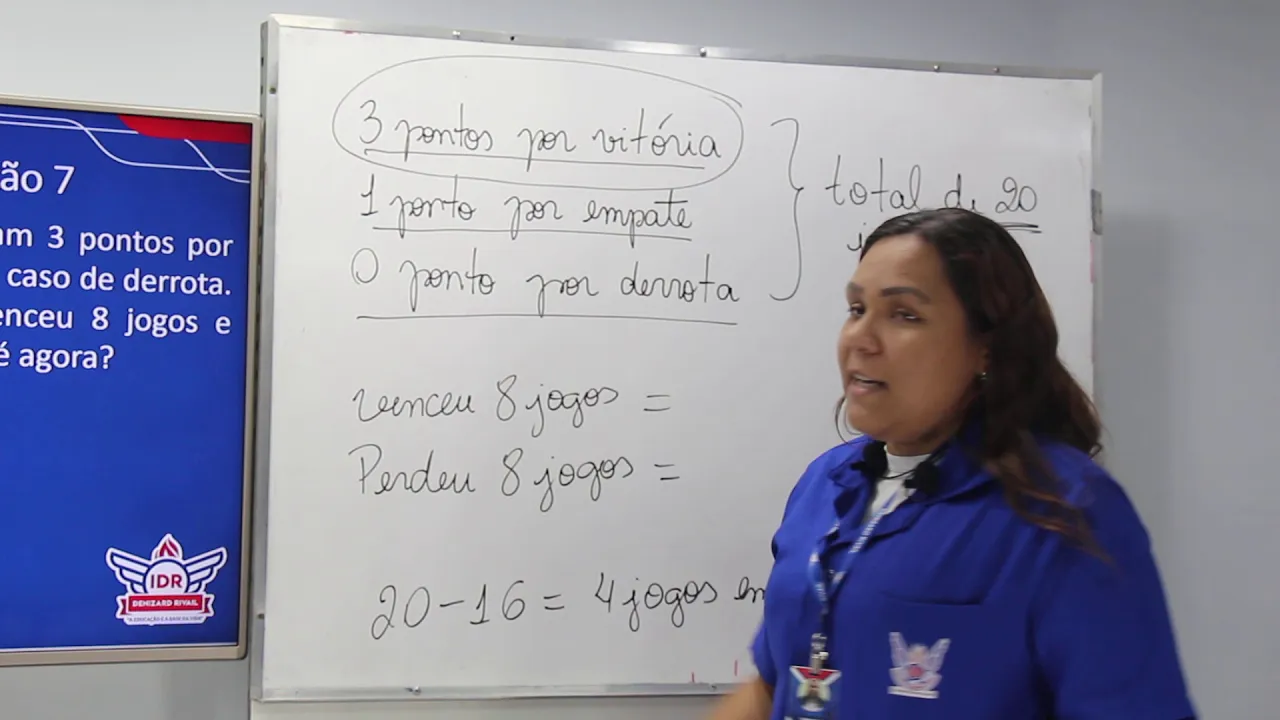 ão 7
am 3 pontos por
caso de derrota.
enceu 8 jogos e
é agora?
IDR
DENIZARD RIVAIL
3 pontos por vitória
1 ponto por empate
0 ponto por derrota
total de 20
venceu 8 jogos =
Perdeu 8 jogos =
20-16 = 4 jogos em